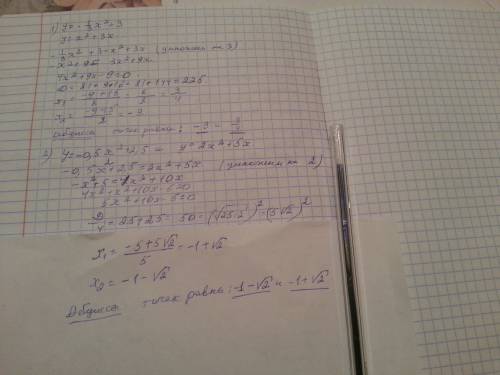 1) y = -1/3 x² + 3
y = x² + 3x
-1/3 x² + 3 = x² + 3x (умножим на 3)
-x² + 9 = 3x² + 9x
4x² + 9x - 9 = 0
D = 81 + 9·16 = 81 + 144 = 225
x₁ = (-9 + 15)/8 = 6/8 = 3/4
x₂ = (-9-15)/8 = -3
Абцисса точек равна: -3 - 3/4
2) y = -0,5x² + 2,5 = y = 2x² + 5x
-0,5x² + 2,5 = 2x² + 5x (умножим на 2)
-x² + 5 = 4x² + 10x
4x² + x² + 10x - 5 = 0
5x² + 10x - 5 = 0
D/4 = 25 + 25 = 50 = (√25·2)² = (5√2)²
x₁ = (-5 + 5√2)/5 = -1 + √2
x₂ = -1 - √2
Абцисса точек равна: -1-√2 и -1+√2